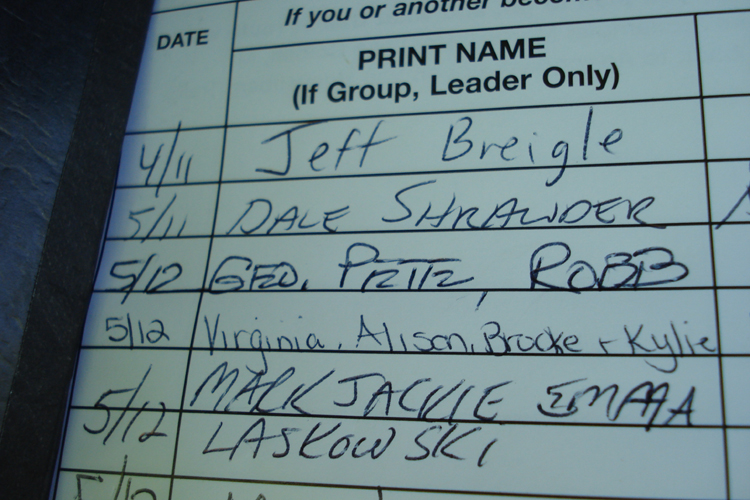 If you or another
DATE
PRINT NAME
(If Group, Leader Only)
4/11 Jeff Breigle
5/11 DALE SHRAWDER
5/12 GEO. , ROBB
5/12 Virginia, Alison, Brooke + Kylie
5/12 MARK JACKIE EMMA
LASKOWSKI